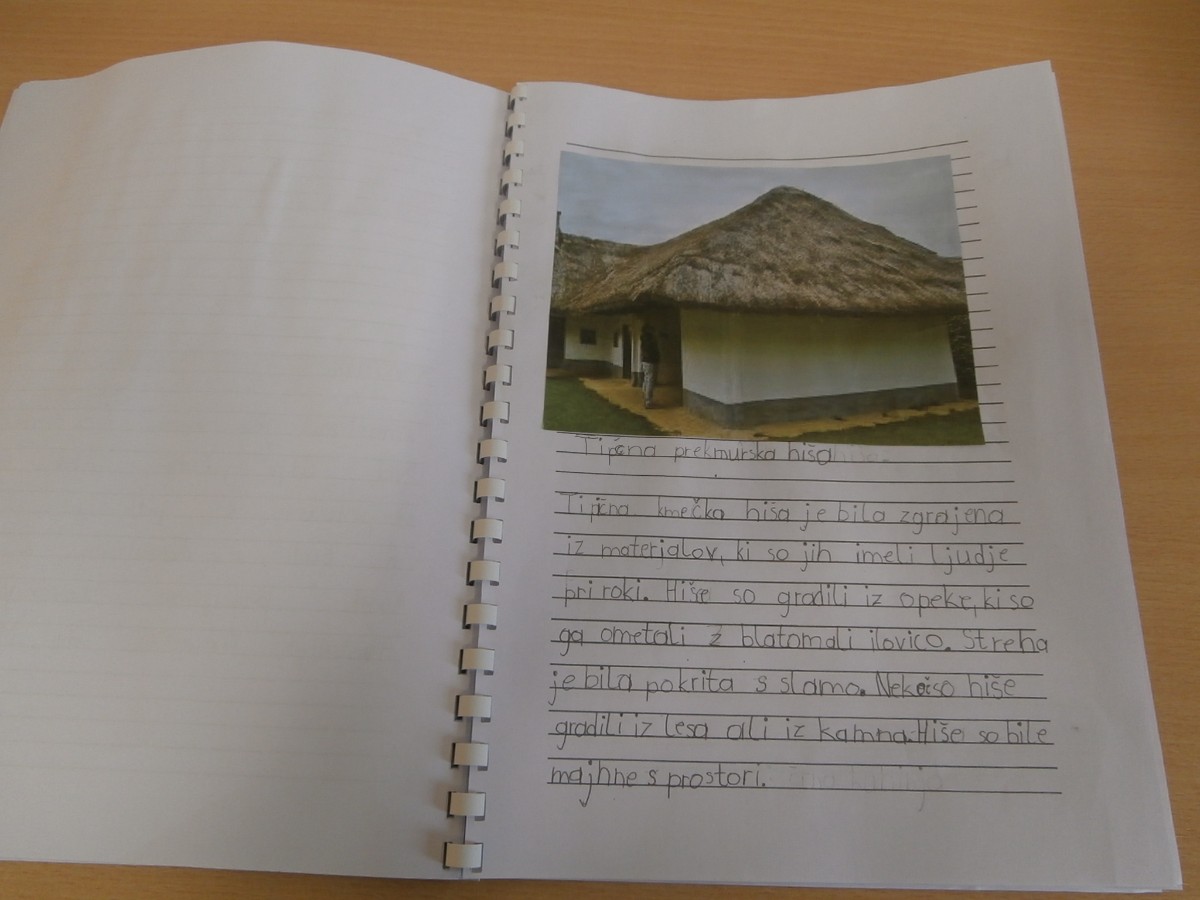 Tipična prekmurska hiša
Tipična kmečka hiša je bila zgrajena
iz materjalov, ki so jih imeli ljudje
pri roki. Hiše so gradili iz opeke, ki so
ga ometali z blatom ali ilovico. Streha
je bila pokrita s slamo. Nekoč so hiše
gradili iz lesa ali iz kamna. Hiše so bile
majhne s prostori.